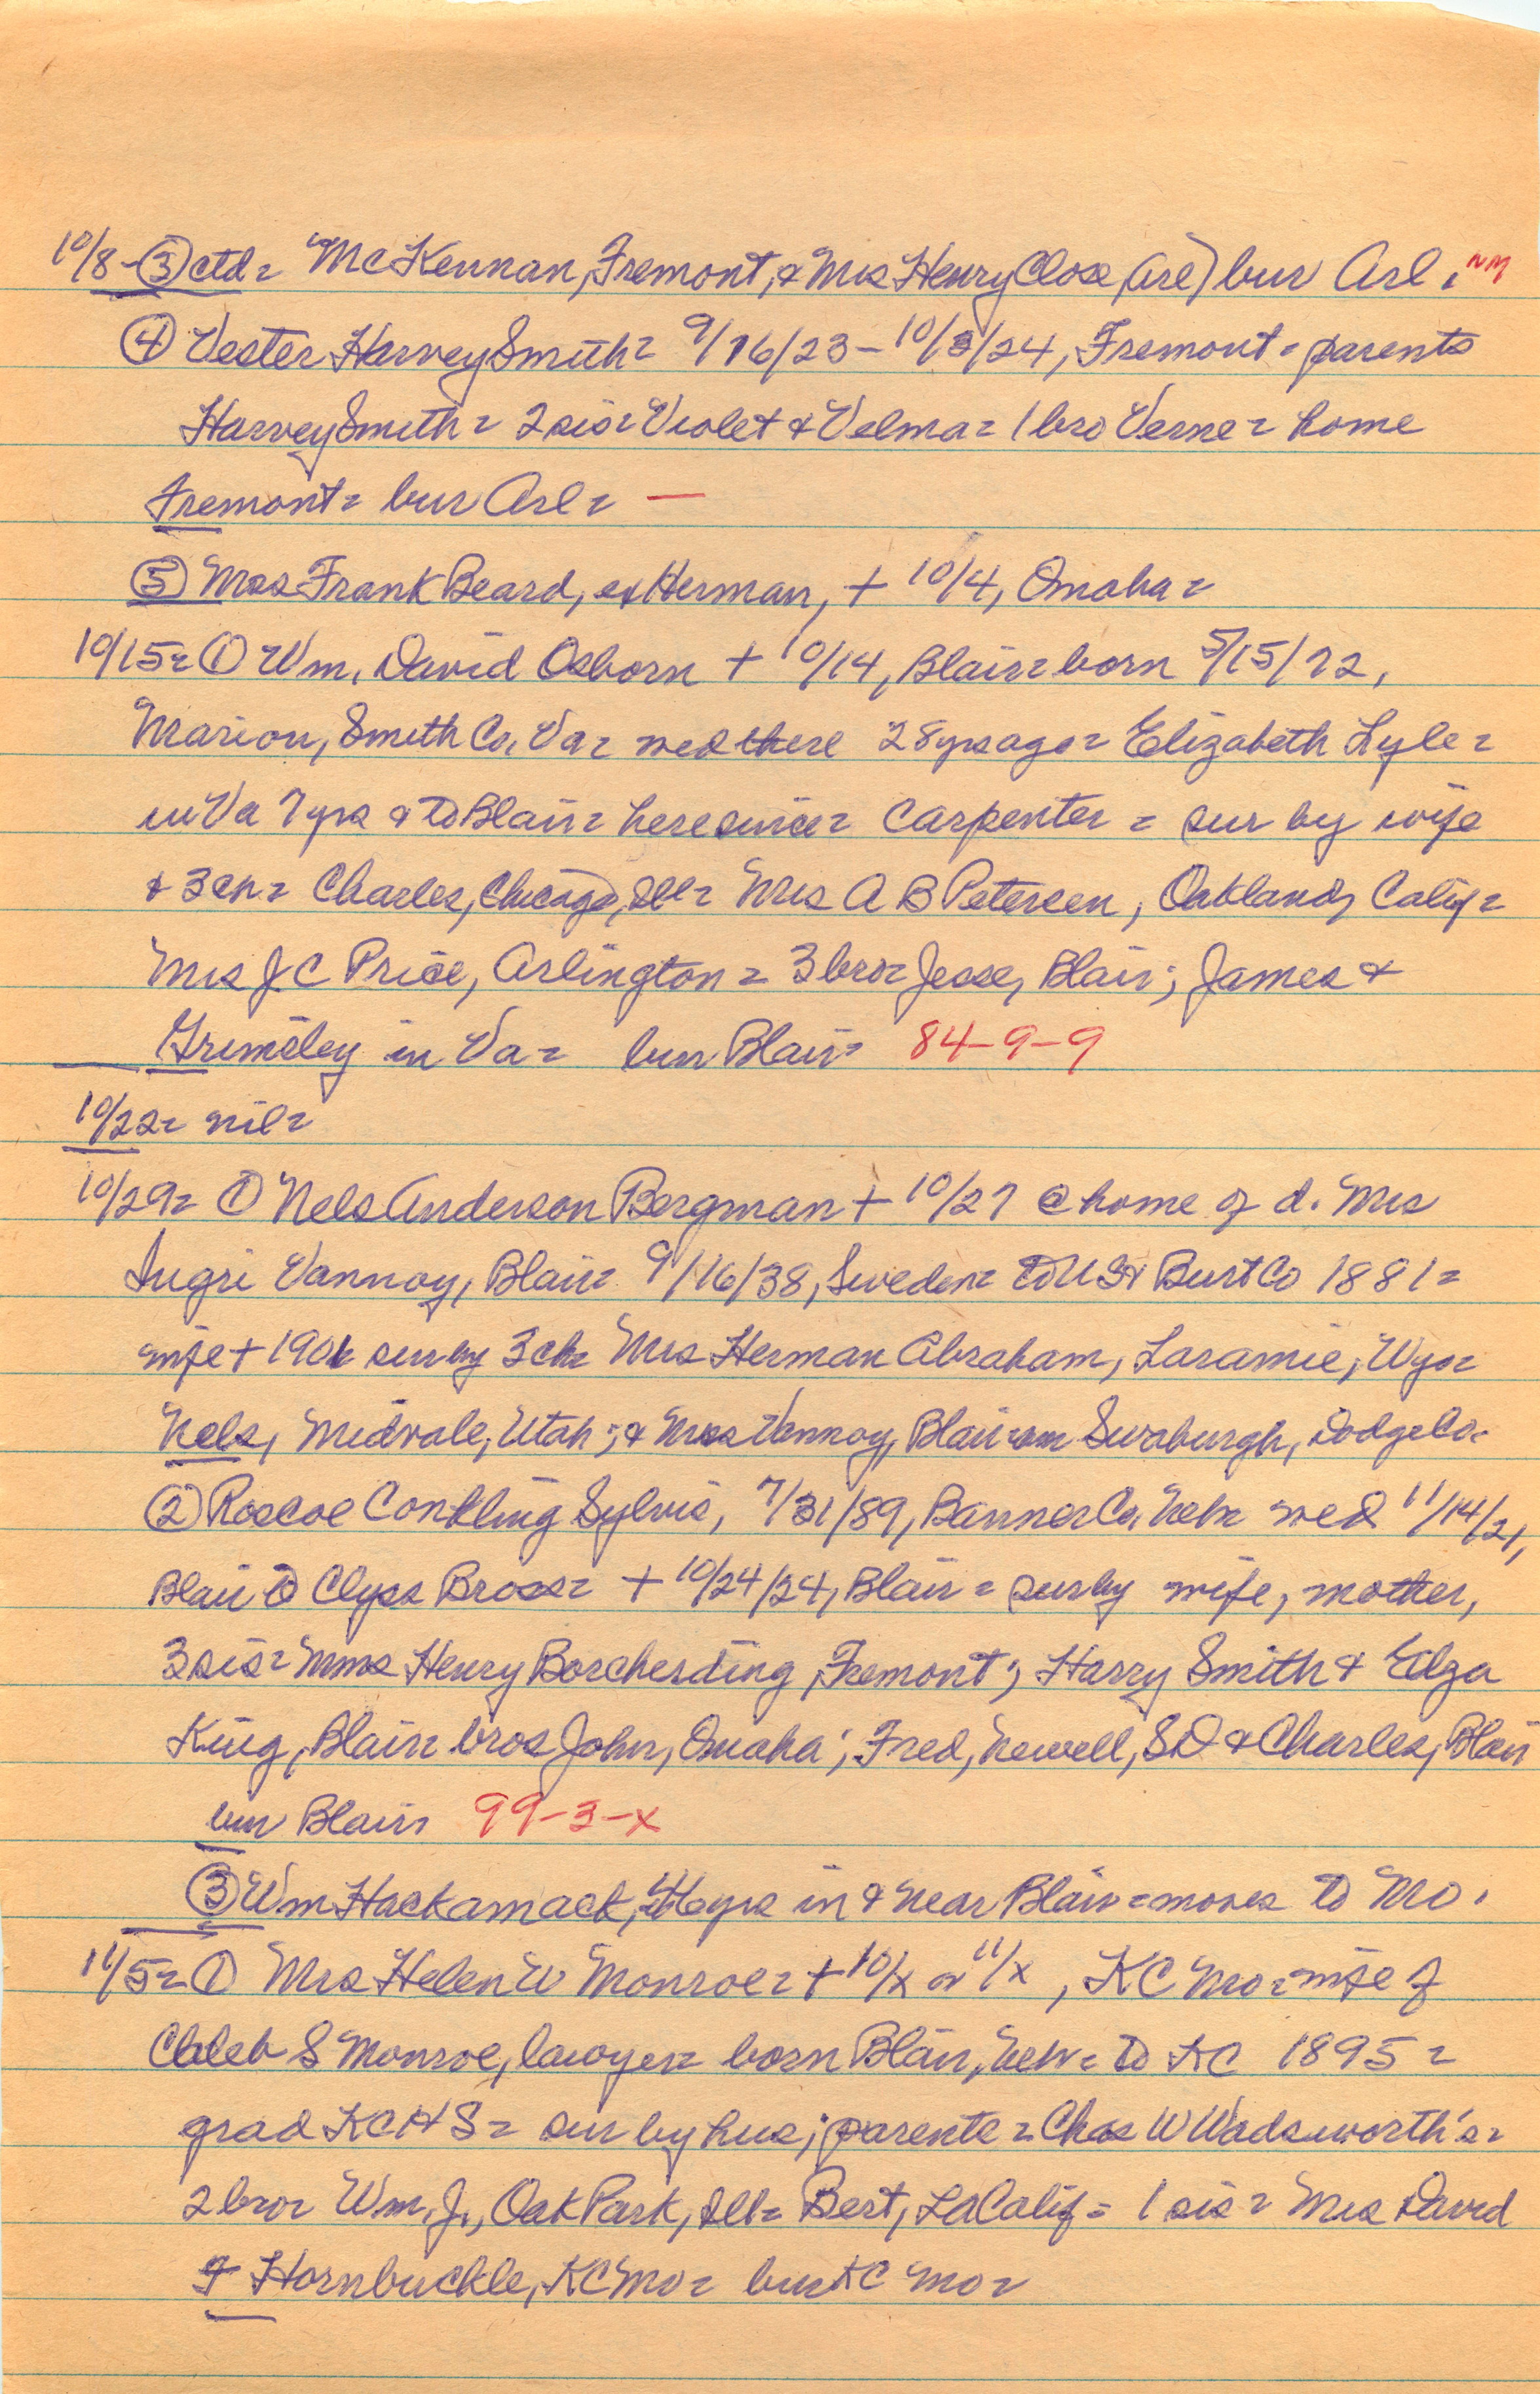 10/8-③ctd= McKennan, Fremont, & Mrs Henry Close, Arl) bur Arl. NM
④ Vester Harvey Smith= 9/16/23-10/3/24, Fremont= parents
Harvey Smith= 2 sis= Violet & Velma= 1 bro Verne= home
Fremont= bur Arl= —
⑤ Mrs Frank Beard, ex Herman, + 10/4, Omaha=
10/15= ① Wm. David Osborn + 10/14, Blair= born 5/15/72,
Marion, Smith Co, Va= wed there 28 yrs ago= Elizabeth Lyle=
in Va 7 yrs & to Blair= here since= carpenter= sur by wife
& 3 ch= Charles, Chicago, Ill= Mrs A B Petersen, Oakland, Calif=
Mrs J C Price, Arlington= 3 bro= Jesse, Blair; James &
Grimsley in Va= bur Blair= 84-9-9
10/22= nil=
10/29= ① Nels Anderson Bergman + 10/27 @ home of d. Mrs
Ingri Vannoy, Blair= 9/16/38, Sweden= to US & Burt Co 1881=
wife + 1901 sur by 3 ch= Mrs Herman Abraham, Laramie, Wyo=
Nels, Midvale, Utah; & Mrs Vannoy, Blair= Swaburgh, Dodge Co.
② Roscoe Conkling Sylvis, 7/31/89, Banner Co, Neb= wed 11/14/21,
Blair to Clyss Bross= + 10/24/24, Blair= sur by wife, mother,
3 sis= Mms Henry Borcherding, Fremont; Harry Smith & Elza
King, Blair= bros John, Omaha; Fred, Newell, SD & Charles, Blair
bur Blair= 99-3-x
③ Wm Hackamack, yrs in & near Blair= moves to Mo.
11/5= ① Mrs Helen W Monroe= + 10/x or 11/x, KC Mo= wife of
Caleb S Monroe, lawyer= born Blair, Neb= to KC 1895=
grad KCHS= sur by hus; parents= Chas W Wadsworth's=
2 bro= Wm. J., Oak Park, Ill= Bert, LA Calif= 1 sis= Mrs David
F Hornbuckle, KC Mo= bur KC Mo=